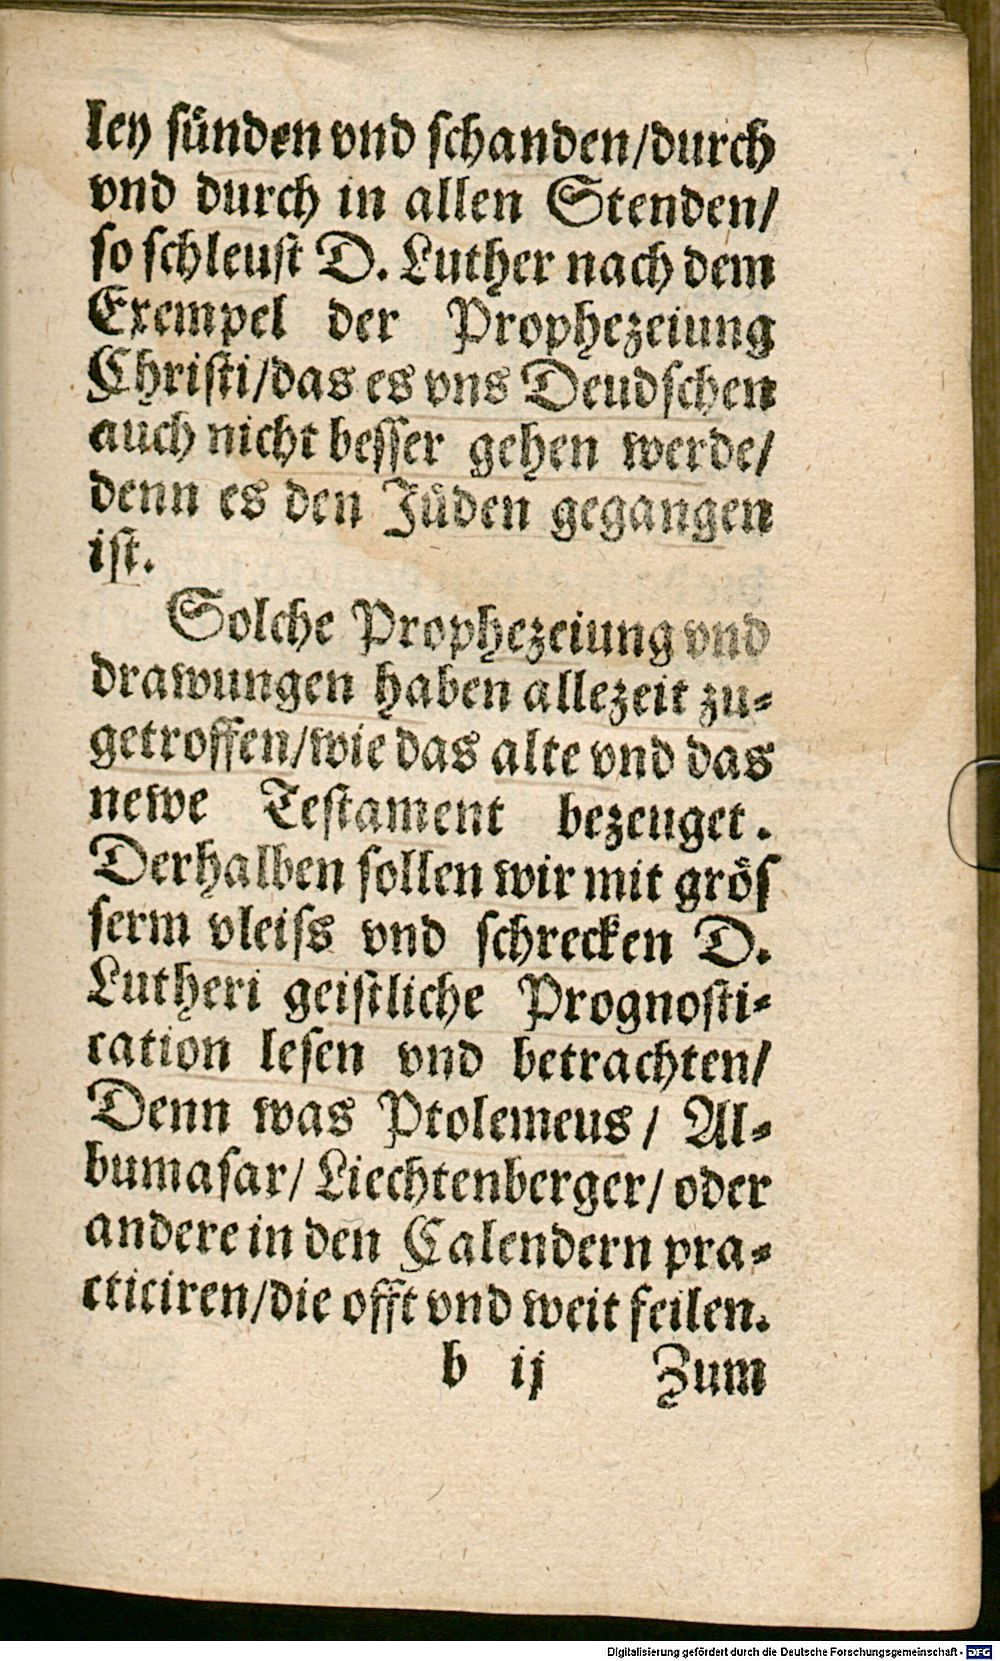 ley sünden vnd schanden/durch
vnd durch in allen Stenden/
so schleust D. Luther nach dem
Exempel der Prophezeiung
Christi/das es vns Deudschen
auch nicht besser gehen werde/
denn es den Jüden gegangen
ist.
Solche Prophezeiung vnd
drawungen haben allezeit zu-
getroffen/wie das alte vnd das
newe Testament bezeuget.
Derhalben sollen wir mit grös
serm vleiss vnd schrecken D.
Lutheri geistliche Prognosti-
cation lesen vnd betrachten/
Denn was Ptolemeus/ Al-
bumasar/ Liechtenberger/ oder
andere in den Calendern pra-
cticiren/die offt vnd weit feilen.
b ij Zum
Digitalisierung gefördert durch die Deutsche Forschungsgemeinschaft - DFG